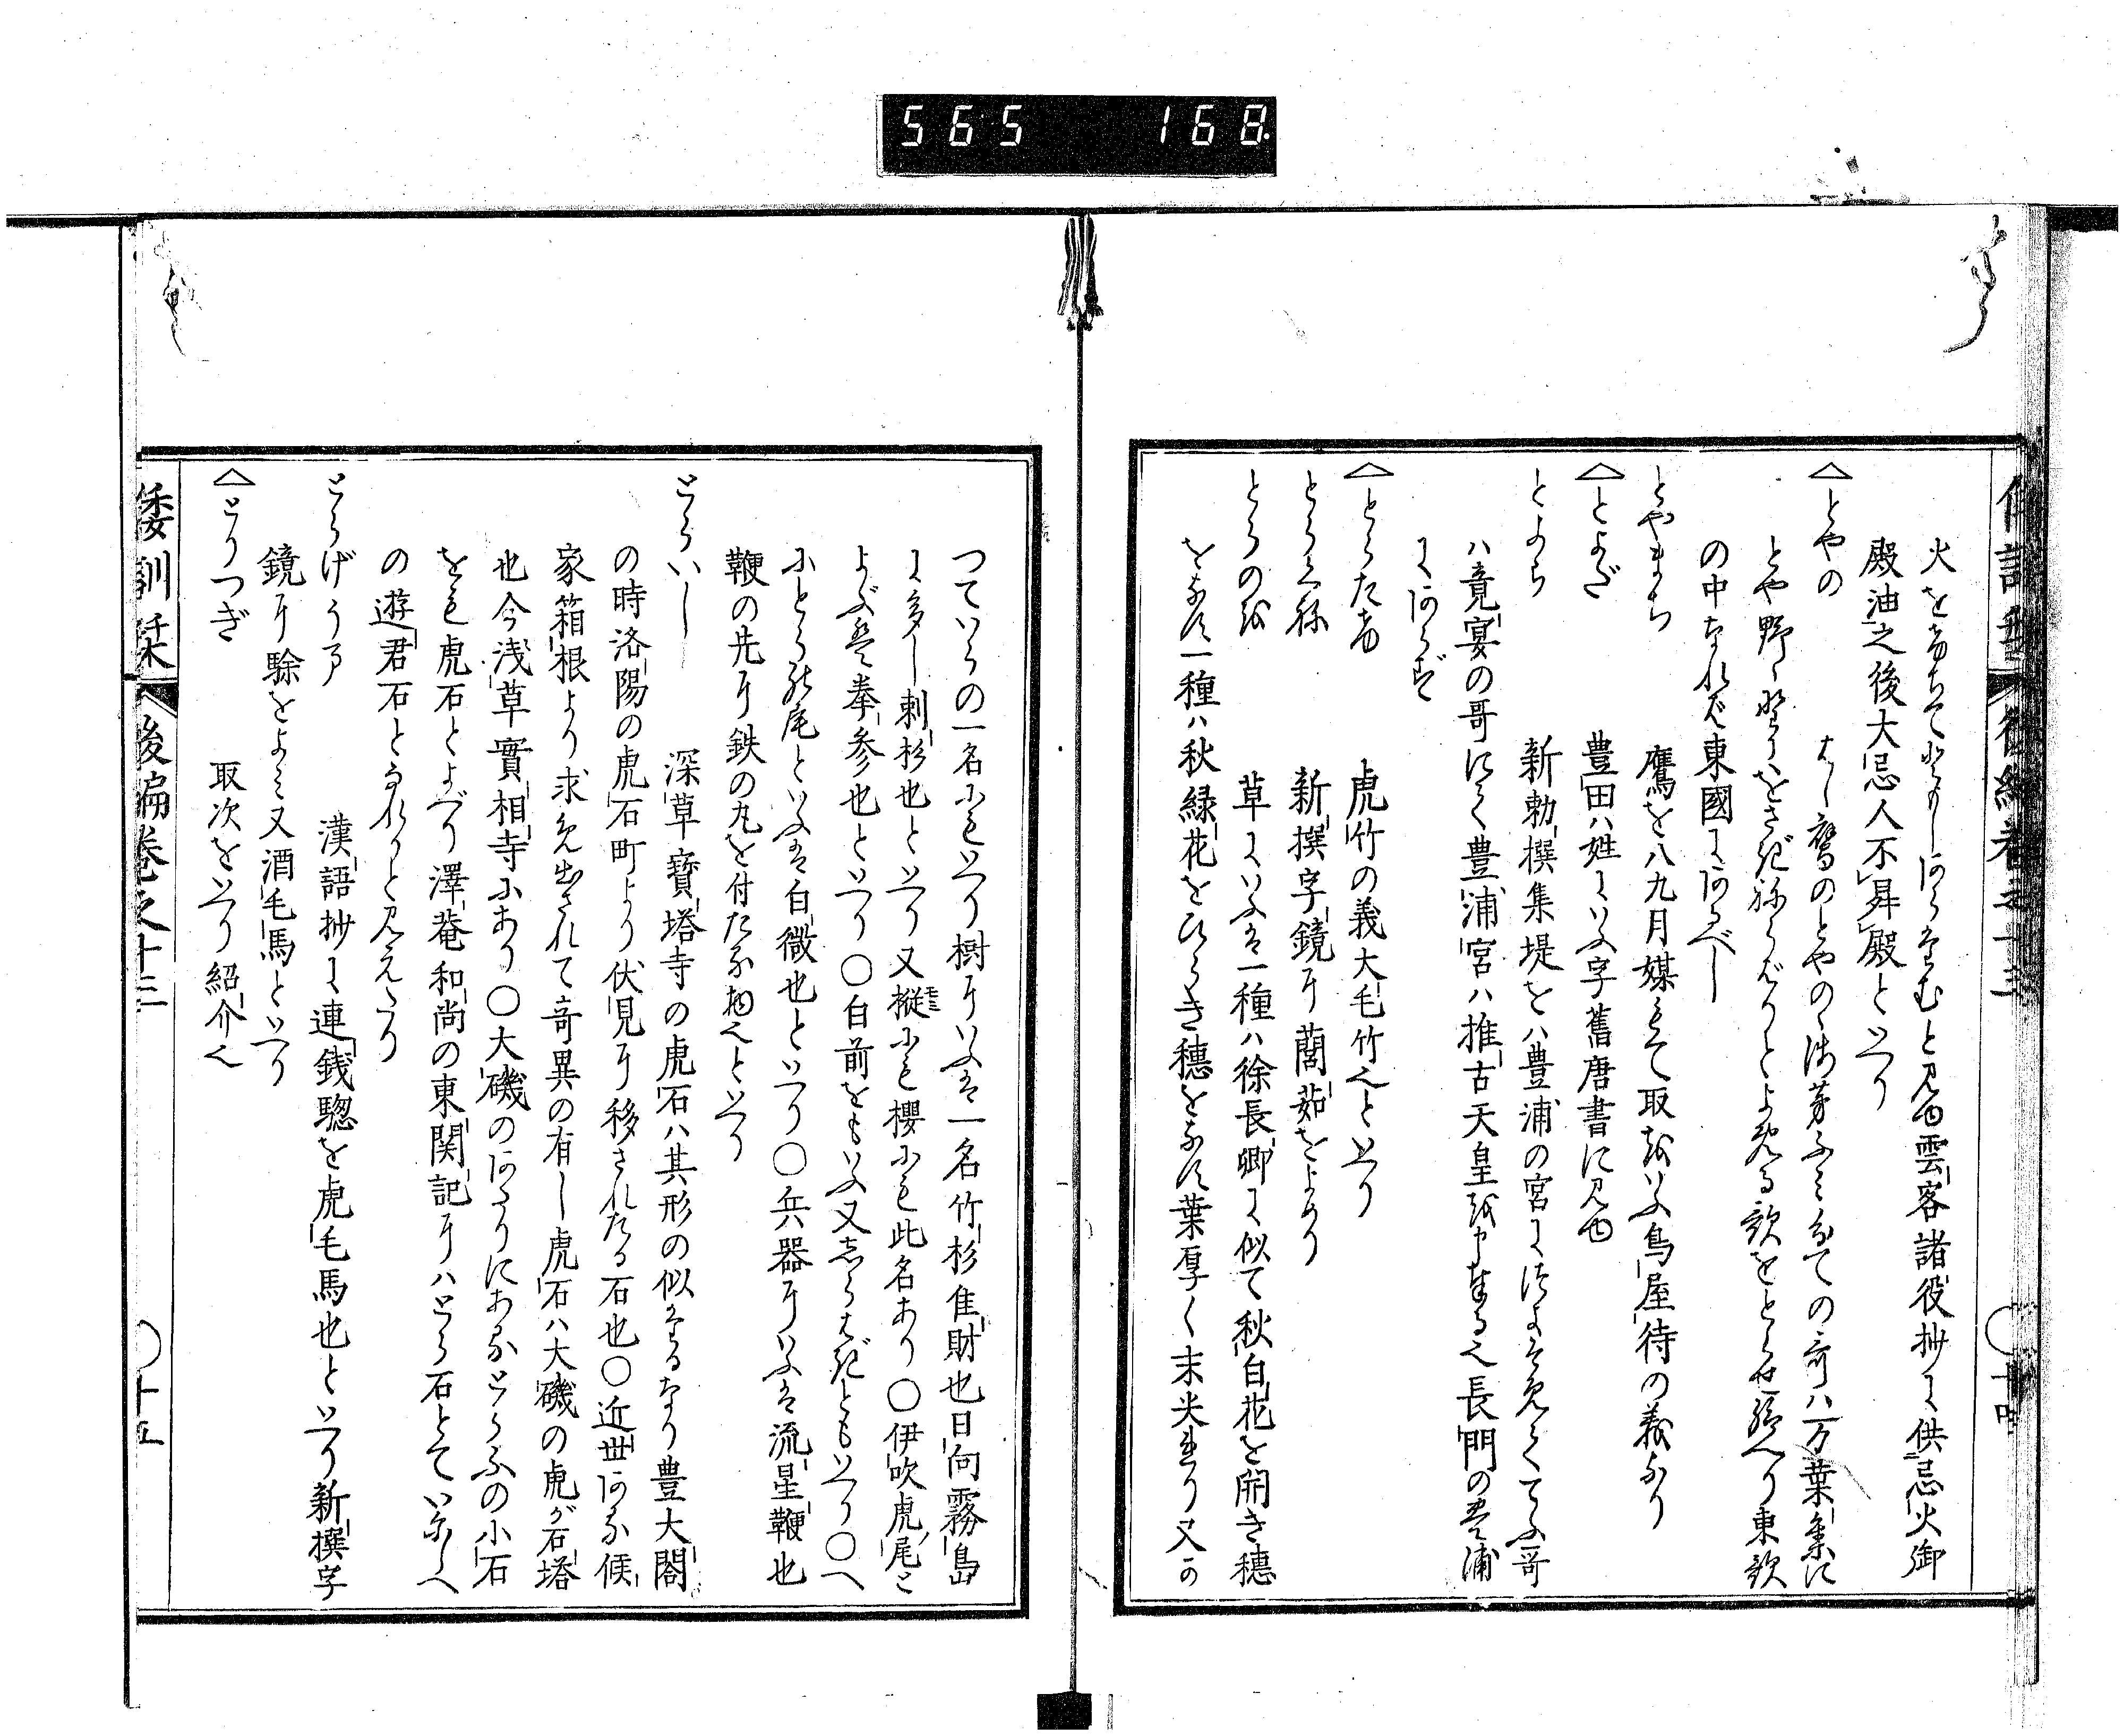 565 168
とり
倭訓栞 後編巻之十三 〇十四
火をもちてともしあらたむと見ゆ雲客諸役抄に供忌火御
殿油之後大忌人不昇殿といへり
△とやの はし鷹のとやのゝ浅茅ふみ分ての哥ハ万葉集に
とや野ゝ
の中なれば東國にあるべし
とやまち 鷹を八九月媒もて取をいふ鳥屋待の義なり
△とよだ 豊田ハ姓にいふ字舊唐書に見ゆ
とよら 新勅撰集堤をハ豊浦の宮に てふ哥
ハ竟宴の哥にて豊浦宮ハ推古天皇を申奉る也長門の豊浦
にあらず
△とらたけ 虎竹の義大毛竹也といへり
とらくね 新撰字鏡に藺茹をよめり
とらのを 草にいふは一種ハ徐長卿に似て秋白花を開き穂
をなす一種ハ秋緑花をひらき穂をなす葉厚く末尖れり又の
つていらの一名にもいへり樹にいふは一名竹杉隹財也日向霧島
に多し刺杉也といへり又樅にも櫻にも此名あり〇伊吹虎ノ尾と
よぶは拳参也といへり〇白前をもいふ又しらはぎともいへり〇へ
にとらの尾といふは白薇也といへり〇兵器にいふは流星鞭也
鞭の先に鉄の丸を付たる物也といへり
とらいし 深草寶塔寺の虎石ハ其形の似たるなり豊大閤
の時洛陽の虎石町より伏見に移されたる石也〇近世ある候
家箱根より求め出されて奇異の有し虎石ハ大磯の虎が石塔
也今浅草實相寺にあり〇大磯のあたりにある とらふの小石
をも虎石とよべり澤菴和尚の東関記にハとら石とていにしへ
の遊君石となれりと見えたり
とらげうま 漢語抄に連銭騘を虎毛馬也といへり新撰字
鏡に駼をよミ又酒毛馬といへり
△とりつぎ 取次をいへり紹介也
倭訓栞 後編巻之十三 〇十五